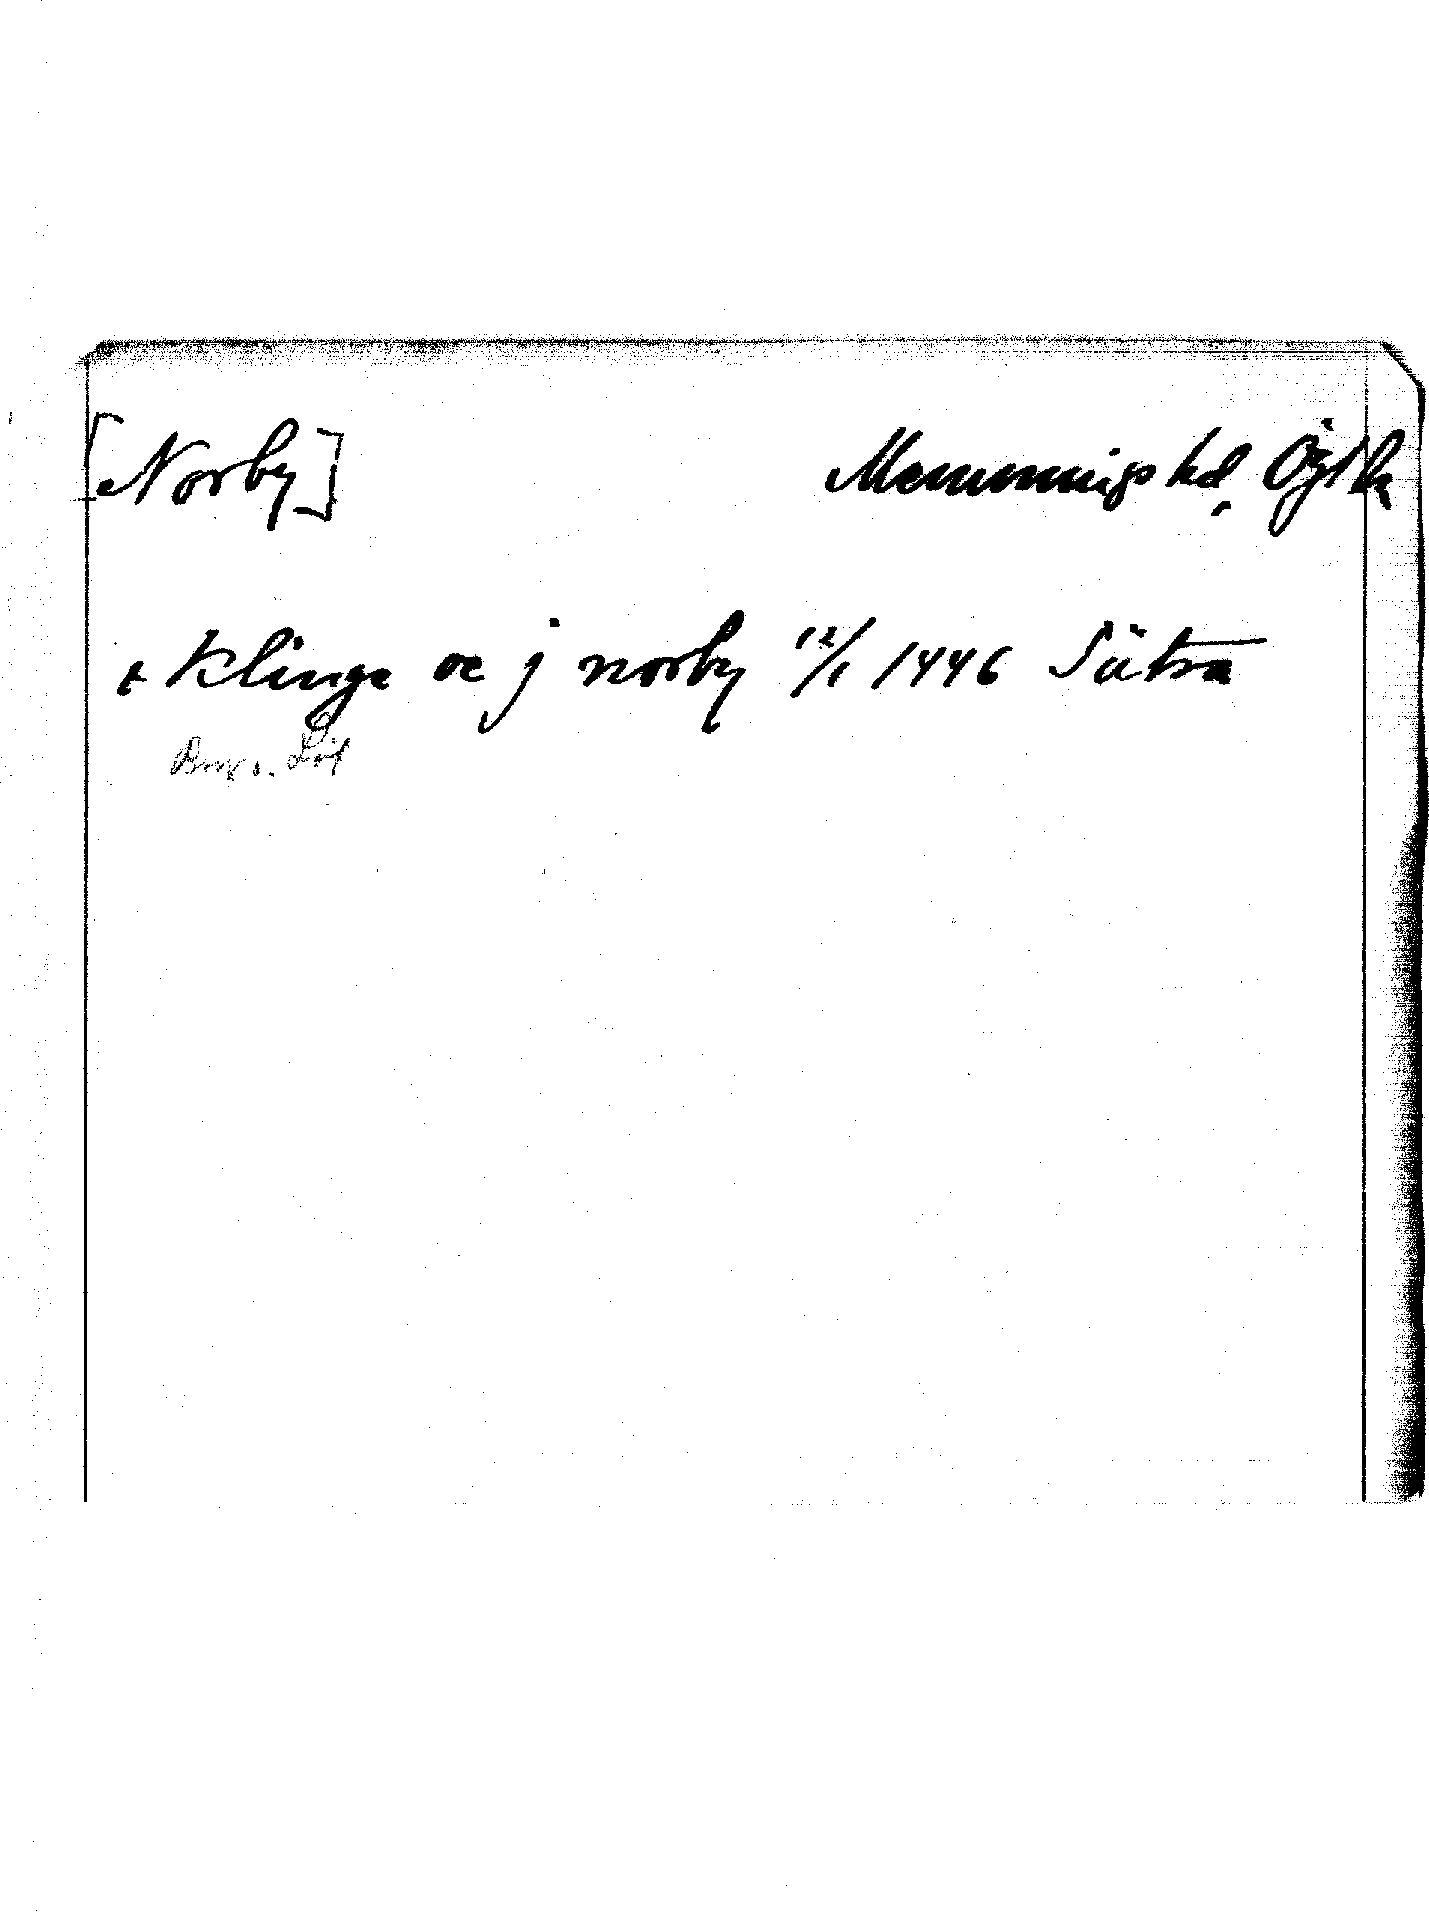 [Norby] Memmings hd, Ögtl
t Klinge oc j norby 12/1 1446 Sätra